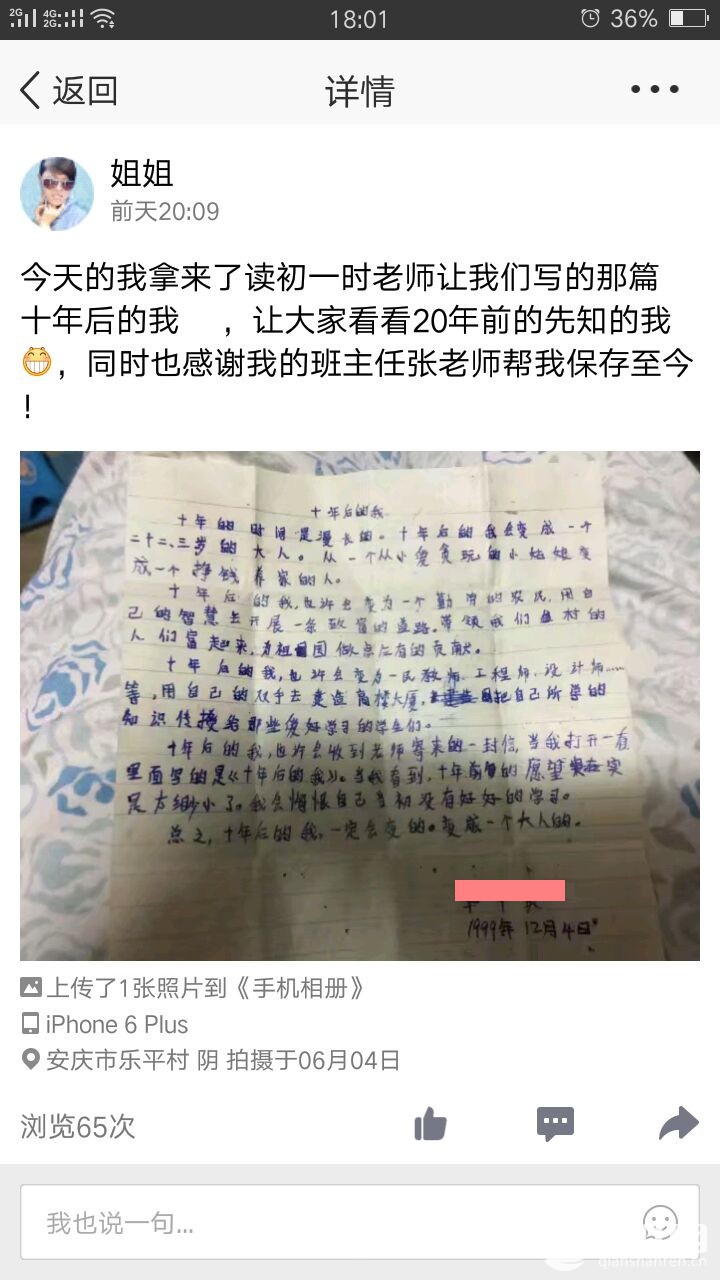 2G 4G 2G 18:01 36%
返回 详情
姐姐
前天20:09
今天的我拿来了读初一时老师让我们写的那篇
十年后的我 ，让大家看看20年前的先知的我
，同时也感谢我的班主任张老师帮我保存至今
！
十年后的我
十年的时间是漫长的。十年后的我会变成一个
二十二、三岁的大人。从一个从小爱贪玩的小姑娘变
成一个挣钱养家的人。
十年后的我，也许会变为一个勤劳的农民，用自
己的智慧去开展一条致富的道路。带领我们村的
人们富起来，为祖国做点应有的贡献。
十年后的我，也许会变为一民教师、工程师、设计师……
等，用自己的双手去建造高楼大厦，把自己所学的
知识传授给那些爱好学习的学生们。
十年后的我，也许会收到老师寄来的一封信，当我打开一看
里面写的是《十年后的我》。当我看到，十年前的愿望实在实
是太渺小了。我会悔恨自己当初没有好好的学习。
总之，十年后的我，一定会变的。变成一个大人的。
1999年12月4日
上传了1张照片到《手机相册》
iPhone 6 Plus
安庆市乐平村 阴 拍摄于06月04日
浏览65次
我也说一句...
qianshanren.cn